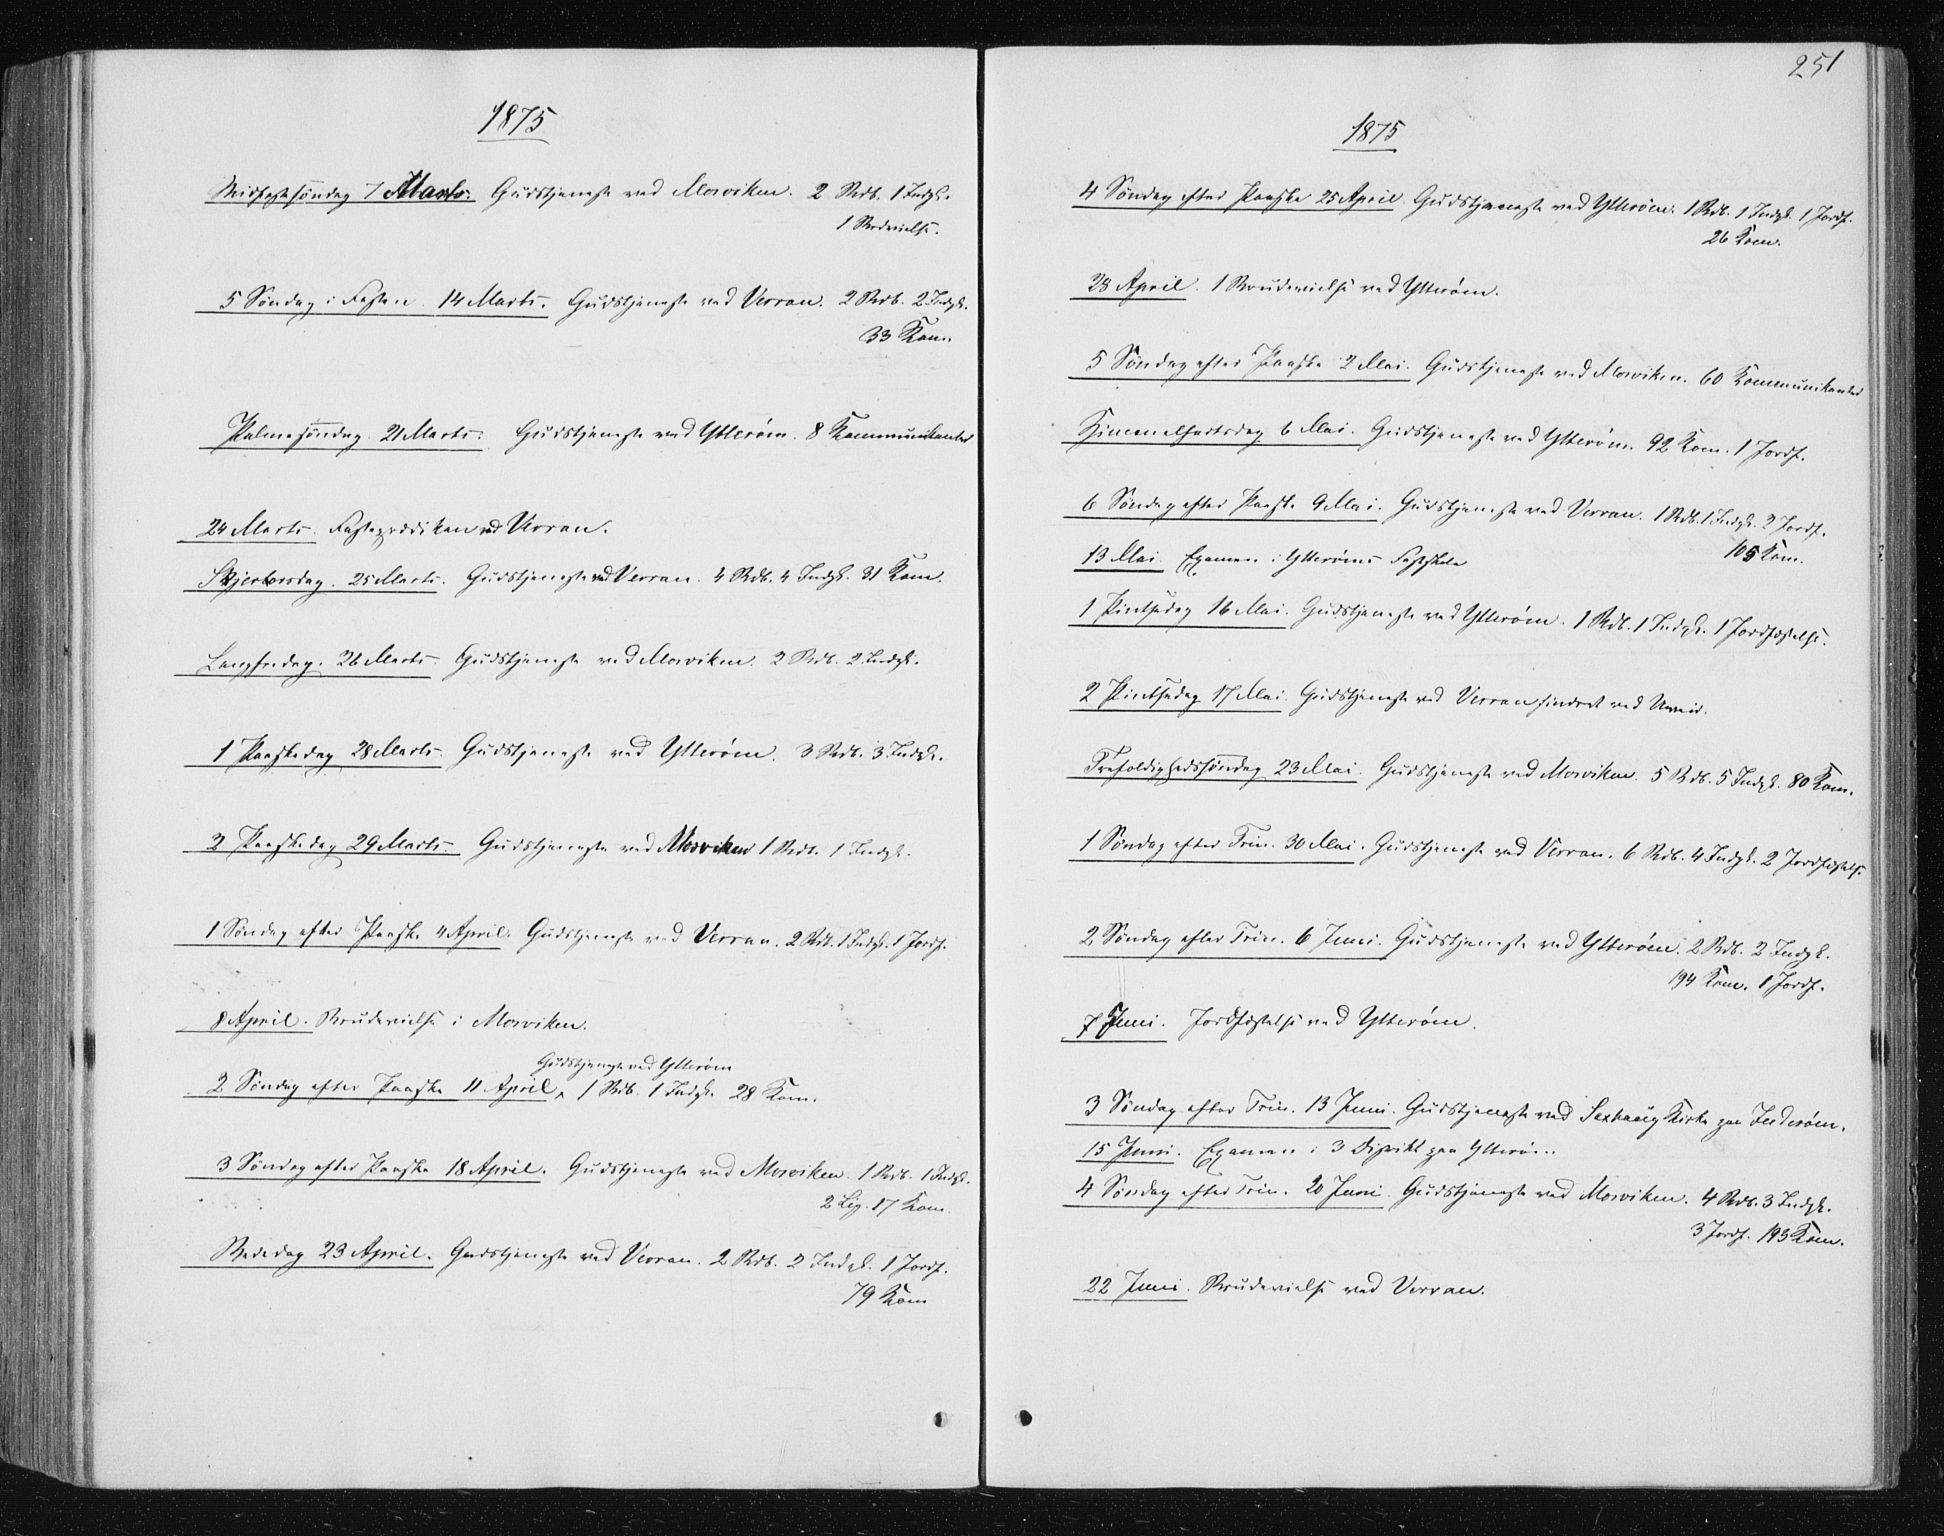 1875
Midfastesøndag 7 Marts. Gudstjeneste ved Mosviken. 2 Rdb. 1 Indgk.
1 Brudevielse.
5 Søndag i Fasten 14 Marts. Gudstjeneste ved Verran. 2 Rdb. 2 Indgk.
33 Kom.
Palmesøndag 21 Marts. Gudstjeneste ved Ytterøen. 8 Kommunikanter
24 Marts. Fasteprædiken ved Verran.
Skjertorsdag. 25 Marts. Gudstjeneste ved Verran. 4 Rdb. 4 Indgk. 31 Kom.
Langfredag. 26 Marts. Gudstjeneste ved Mosviken. 2 Rdb. 2 Indgk.
1 Paaskedag 28 Marts. Gudstjeneste ved Ytterøen. 3 Rdb. 3 Indgk.
2 Paaskedag 29 Marts. Gudstjeneste ved Mosviken 1 Rdb. 1 Indgk.
1 Søndag efter Paaske 4 April. Gudstjeneste ved Verran. 2 Rdb. 1 Indgk. 1 Jordf.
8 April. Brudevielse i Mosviken.
Gudstjeneste ved Ytterøen
2 Søndag efter Paaske 11 April, 1 Rdb. 1 Indgk. 28 Kom.
3 Søndag efter Paaske 18 April. Gudstjeneste ved Mosviken. 1 Rdb. 1 Indgk.
2 Lig. 17 Kom.
Bededag 23 April. Gudstjeneste ved Verran. 2 Rdb. 2 Indgk. 1 Jordf.
79 Kom
251
1875
4 Søndag efter Paaske 25 April. Gudstjeneste ved Ytterøen. 1 Rdb. 1 Indgk. 1 Jordf.
26 Kom.
28 April. 1 Brudevielse ved Ytterøen.
5 Søndag efter Paaske 2 Mai. Gudstjeneste ved Mosviken. 60 Kommunikanter
Himmelfartsdag 6 Mai. Gudstjeneste ved Ytterøen. 92 Kom. 1 Jordf.
6 Søndag efter Paaske 9 Mai. Gudstjeneste ved Verran. 1 Rdb. 1 Indgk. 2 Jordf.
105 Kom.
13 Mai. Examen i Ytterøens Fastskole
1 Pintsedag 16 Mai. Gudstjeneste ved Ytterøen. 1 Rdb. 1 Indgk. 1 Jordfæstelse.
2 Pintsedag 17 Mai. Gudstjeneste ved Verran hindret ved Uveir.
Trefoldighedssøndag 23 Mai. Gudstjeneste ved Mosviken. 5 Rdb. 5 Indgk. 80 Kom.
1 Søndag efter Trin. 30 Mai. Gudstjeneste ved Verran. 6 Rdb. 4 Indgk. 2 Jordfæstels.
2 Søndag efter Trin. 6 Juni. Gudstjeneste ved Ytterøen. 2 Rdb. 2 Indgk.
194 Kom. 1 Jordf.
7 Juni. Jordfæstelse ved Ytterøen.
3 Søndag efter Trin. 13 Juni. Gudstjeneste ved Saxhaug Kirke paa Inderøen.
15 Juni. Examen i 3 Distrikt paa Ytterøen.
4 Søndag efter Trin. 20 Juni. Gudstjeneste ved Mosviken. 4 Rdb. 3 Indgk.
3 Jordf. 193 Kom.
22 Juni. Brudevielse ved Verran.